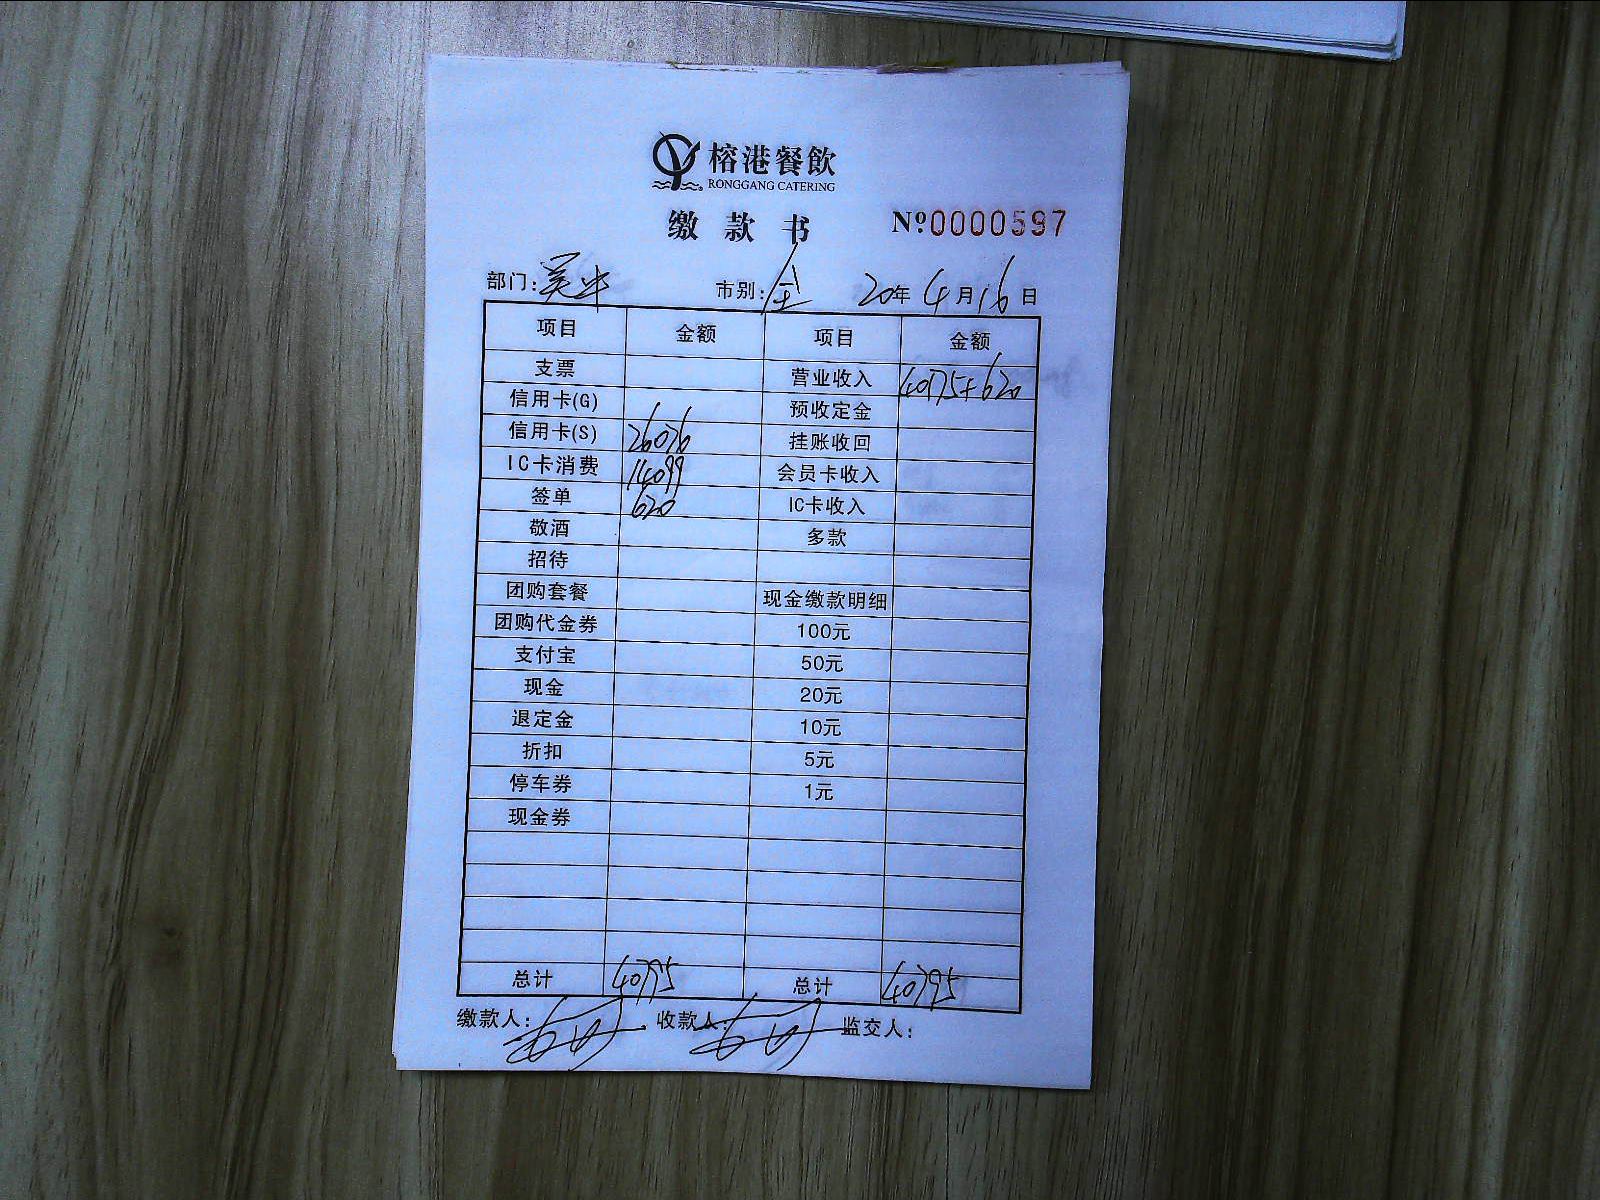 榕港餐飲
RONGGANG CATERING
缴款书 №0000597
部门: 市别:全 20年4月16日
项目 金额 项目 金额
支票 营业收入 40175+620
信用卡(G) 预收定金
信用卡(S) 26076 挂账收回
IC卡消费 14099 会员卡收入
签单 620 IC卡收入
敬酒 多款
招待
团购套餐 现金缴款明细
团购代金券 100元
支付宝 50元
现金 20元
退定金 10元
折扣 5元
停车券 1元
现金券
总计 40795 总计 40795
缴款人: 收款人: 监交人: